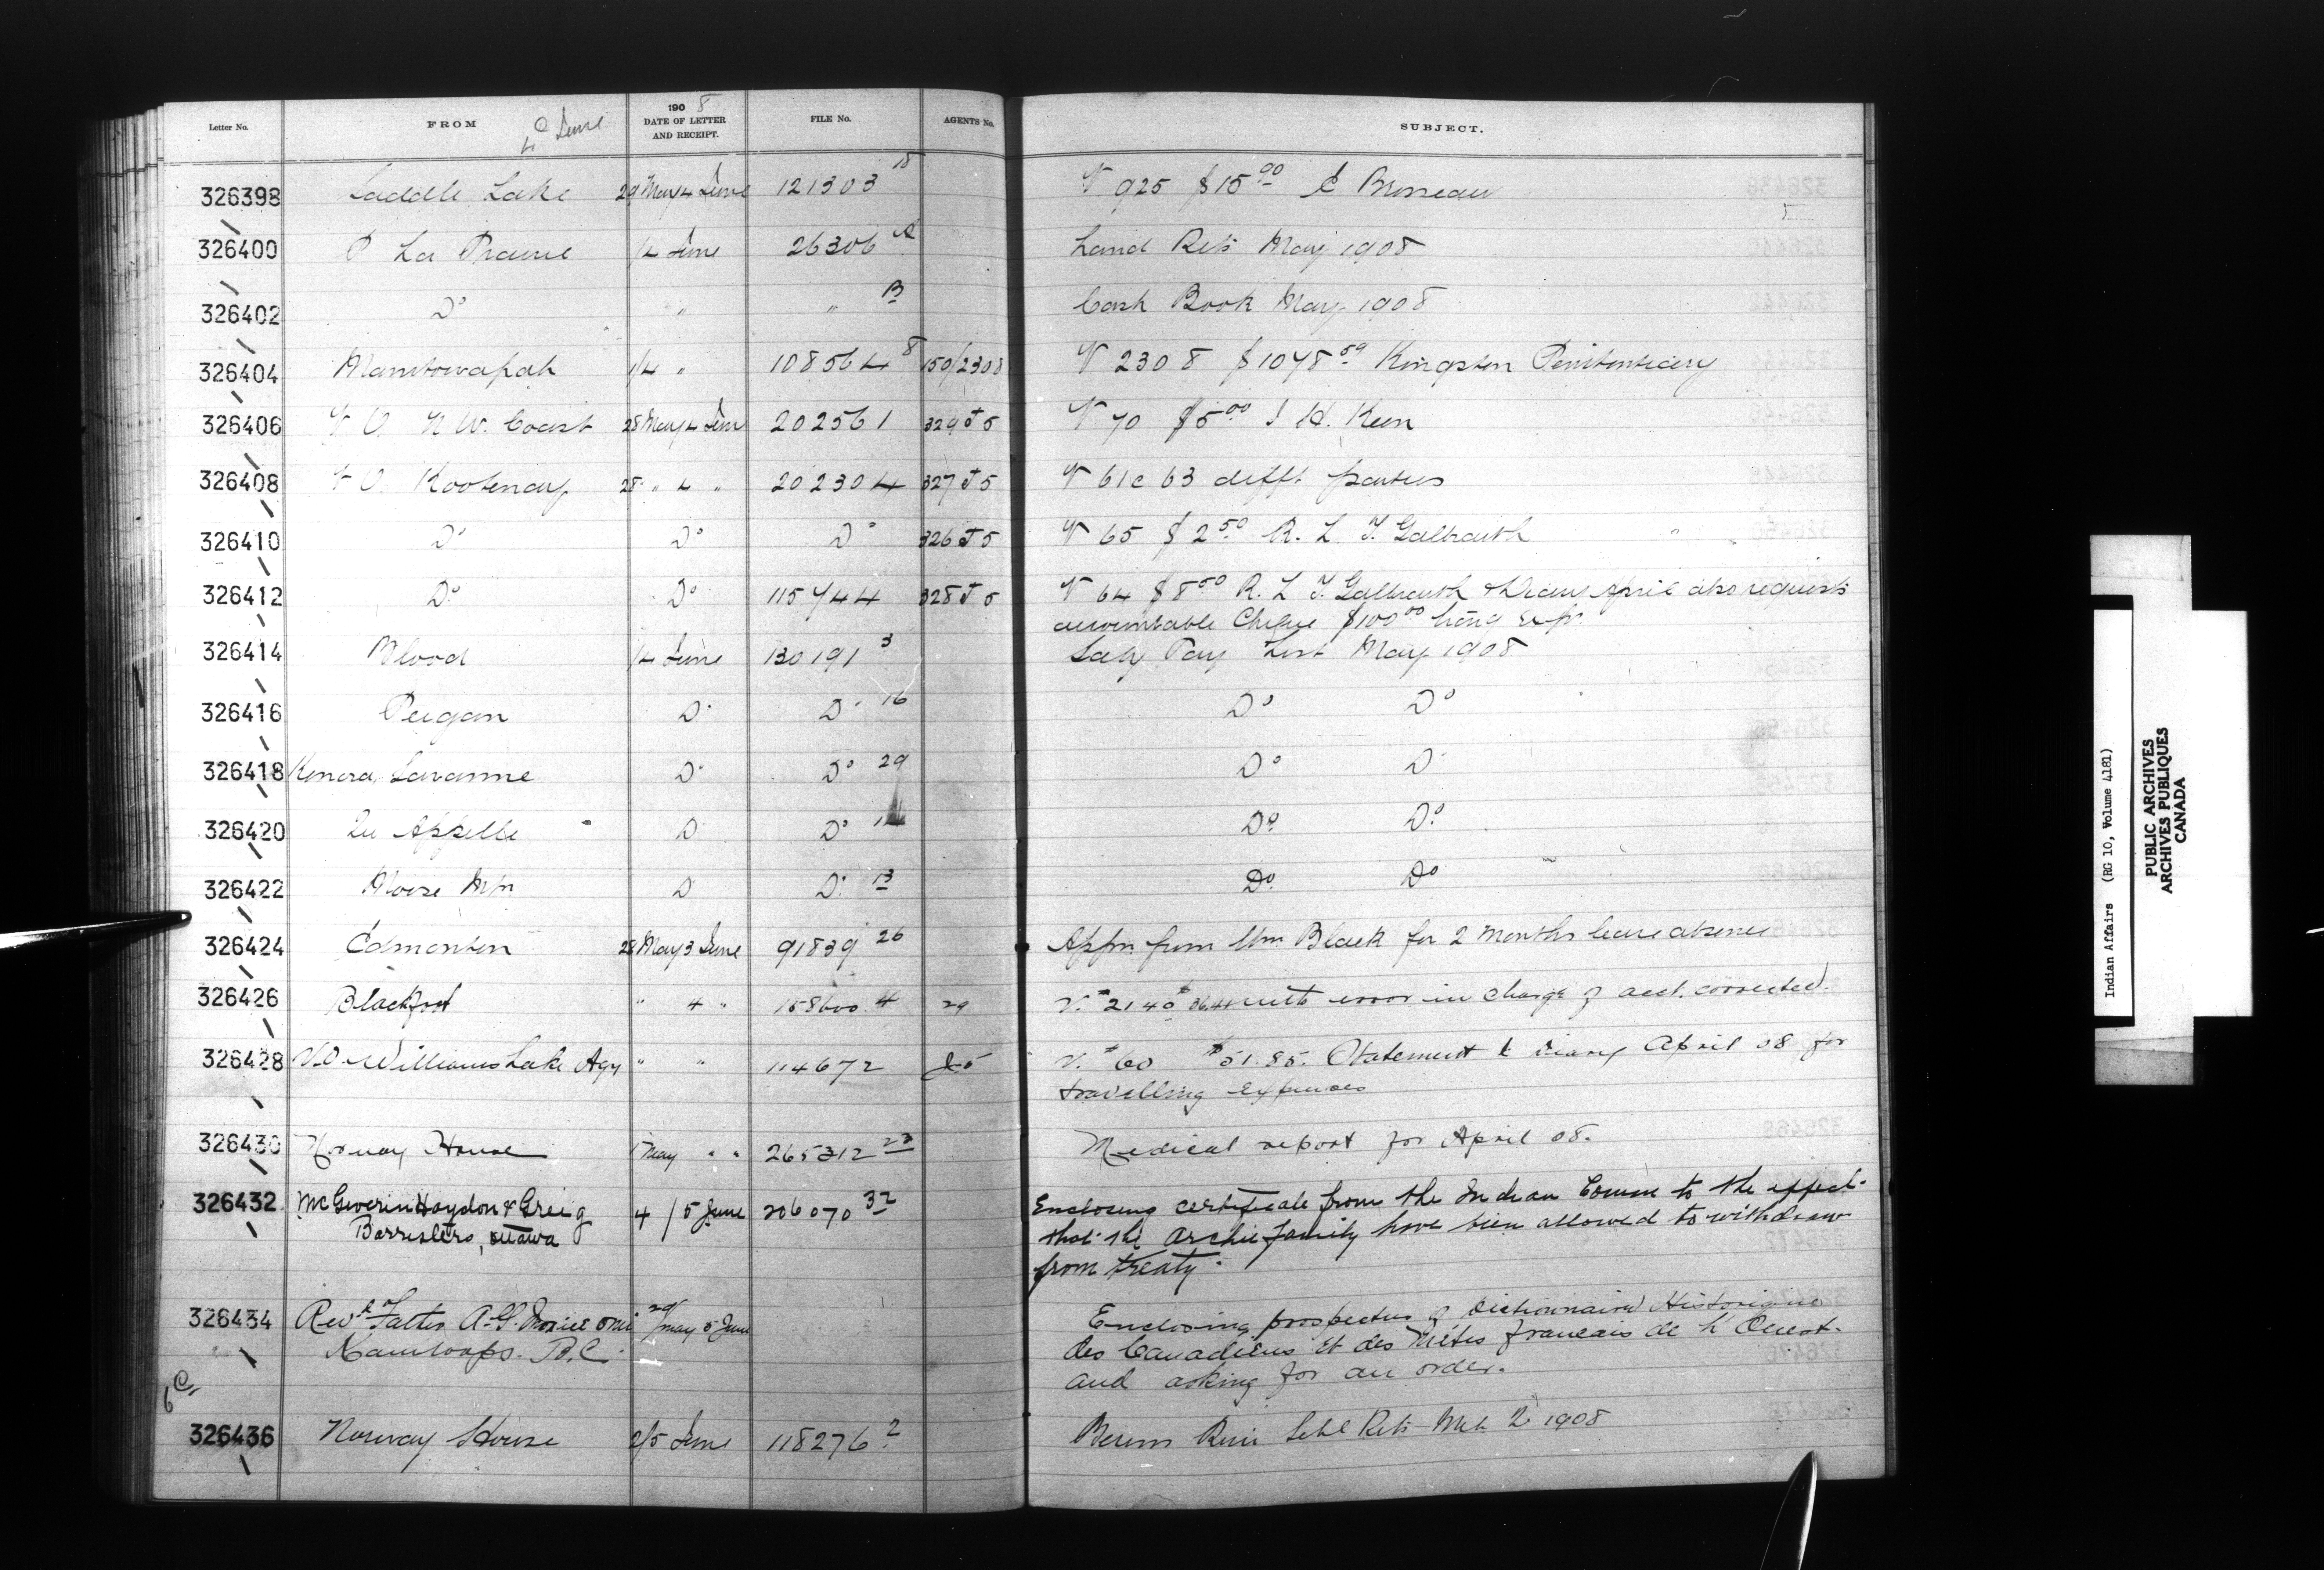 Letter No. FROM 190 8 DATE OF LETTER AND RECEIPT. FILE No. AGENTS No. SUBJECT.
4 June
326398 Saddle Lake 29 May 4 June 121303 18 V 925 $15 00 E Brosseau
326400 P La Prairie 1/4 June 26306 Land Rets May 1908
326402 Do " " B Cash Book May 1908
326404 Manitowapah 1/4 " 108564 8 150/2308 V 2308 $1078 59 Kingston Penitentiary
326406 V O N W. Coast 28 May 4 June 202561 329 J5 V 70 $5 00 J H. Keen
326408 V O. Kootenay 28 " 4 " 202304 327 J5 V 61 63 difft parties
326410 Do Do Do 326 J5 V 65 $2 50 R. L. T. Galbraith
326412 Do Do 115744 328 J5 V 64 $8 50 R. L T. Galbraith & Diary April also requests
accountable Cheque $100 00 Exps
326414 Blood 1/4 June 130191 3 Saly Pay List May 1908
326416 Peigan Do Do 16 Do Do
326418 Kenora, Savanne Do Do 29 Do Do
326420 Qu Appelle Do Do Do Do
326422 Moose Mtn Do Do 13 Do Do
326424 Edmonton 28 May 3 June 91839 26 Appn from Wm Black for 2 Months leave absence
326426 Blackfoot " 4 " 158600 4 29 V. # 2140 $36.41 with error in charge of acct. corrected.
326428 V.O. Williams Lake Agy " " 114672 J5 V. # 60 $51.85. Statement & Diary April 08 for
travelling expenses
326430 Norway House 1 May " " 265312 23 Medical report for April 08.
326432 McGiverin Haydon & Greig 4 / 5 June 206070 32 Enclosing certificate from the Indian Commr to the effect
Barristers, Ottawa that the Archie family have been allowed to withdraw
from treaty.
326434 Revd Father A. G. Morice omi 29/May 5 June Enclosing prospectus of Dictionnaire Historique
Kamloops. B.C. des Canadiens et des Métis francais de l'Ouest.
and asking for an order.
6
326436 Norway House 2/5 June 118276 2 Berens River Schl Rets Mch 2 1908
Indian Affairs (RG 10, Volume 4181)
PUBLIC ARCHIVES
ARCHIVES PUBLIQUES
CANADA